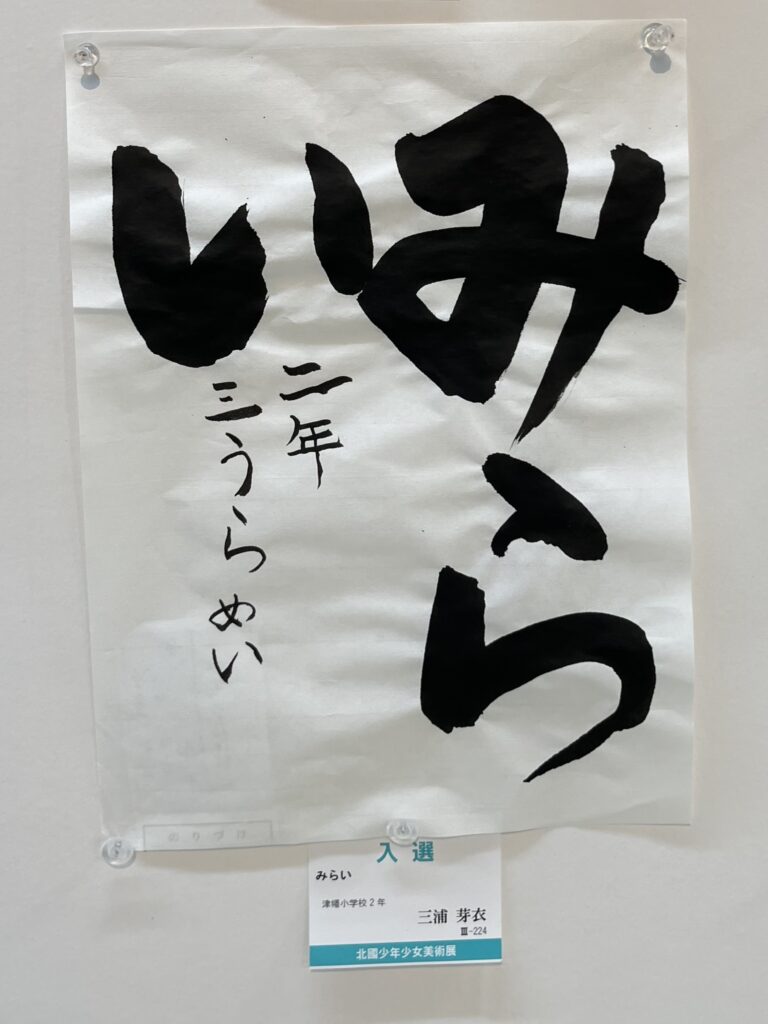 みら
い
二年
三うらめい
のりづけ
入選
みらい
津幡小学校2年
三浦 芽衣
Ⅲ-224
北國少年少女美術展